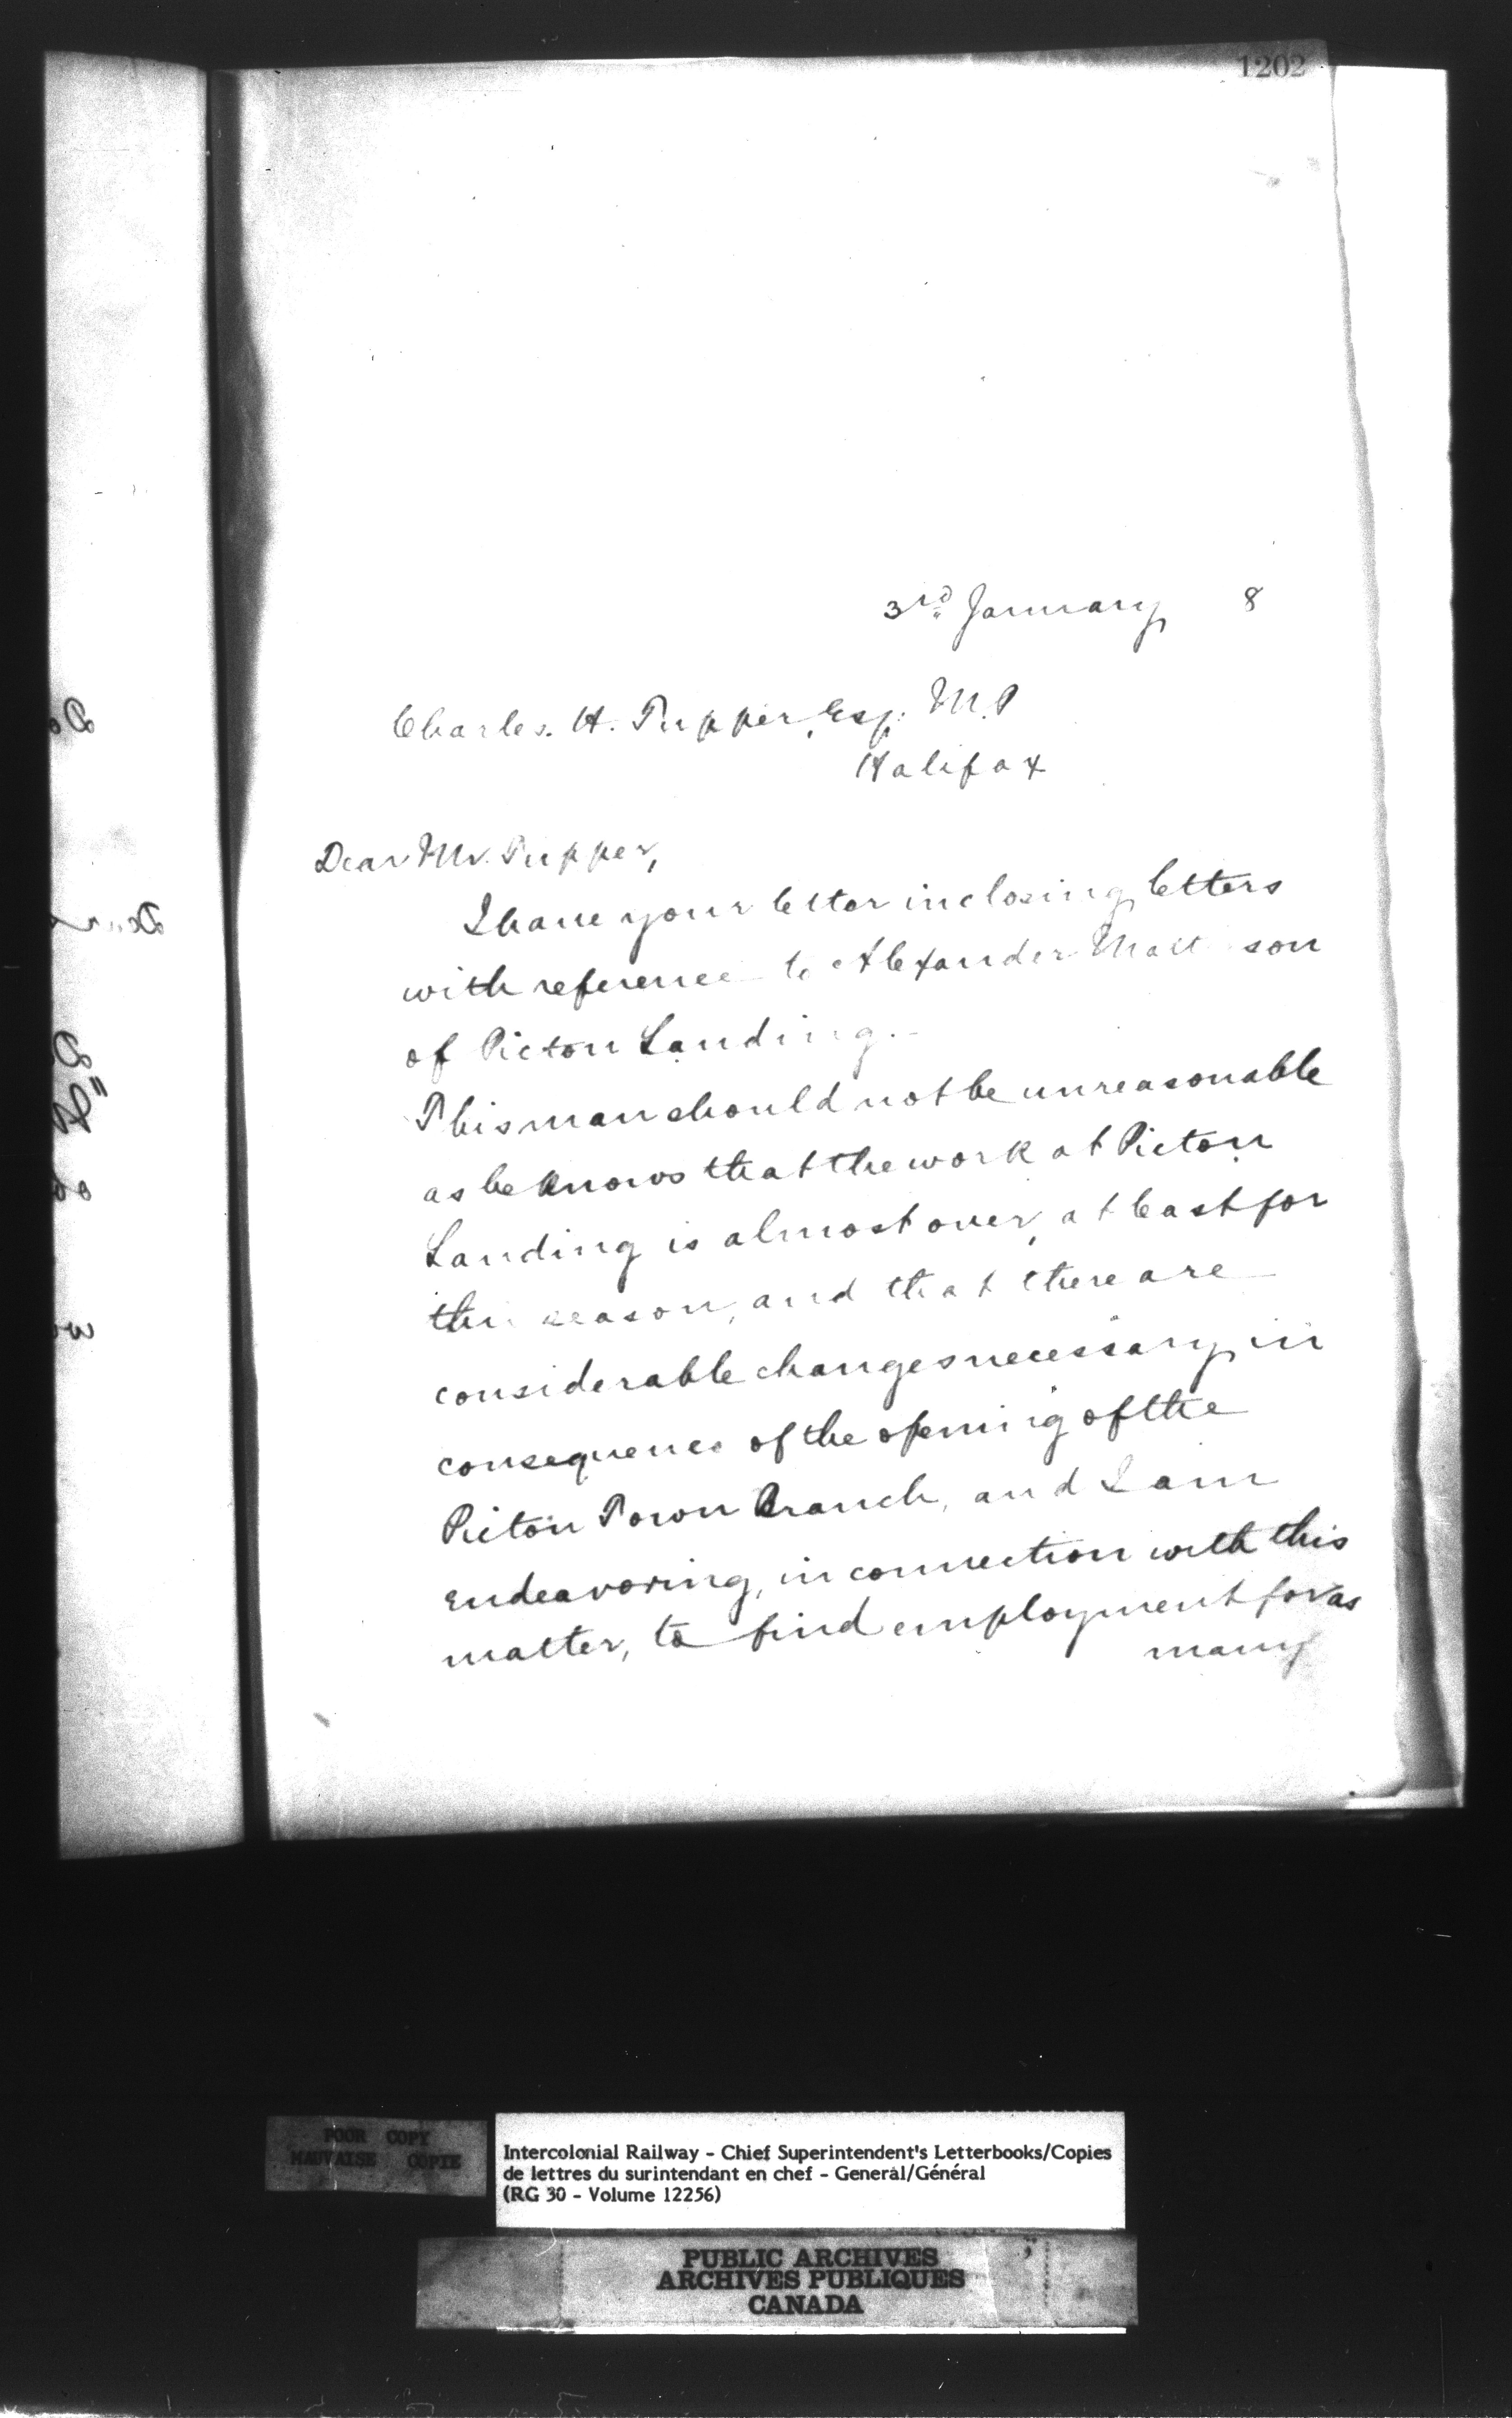 1202
3rd January 8
Charles. H. Tupper, Esq. M.P
Halifax
Dear Mr. Tupper,
I have your letter inclosing letters
with reference to Alexander son
of Picton Landing.
This man should not be unreasonable
as he knows that the work at Picton
Landing is almost over, at least for
the season, and that there are
considerable changes necessary in
consequence of the opening of the
Picton Town Branch, and I am
endeavoring, in connection with this
matter, to find employment for as
many
POOR COPY
MAUVAISE COPIE
Intercolonial Railway - Chief Superintendent's Letterbooks/Copies
de lettres du surintendant en chef - General/Général
(RG 30 - Volume 12256)
PUBLIC ARCHIVES
ARCHIVES PUBLIQUES
CANADA